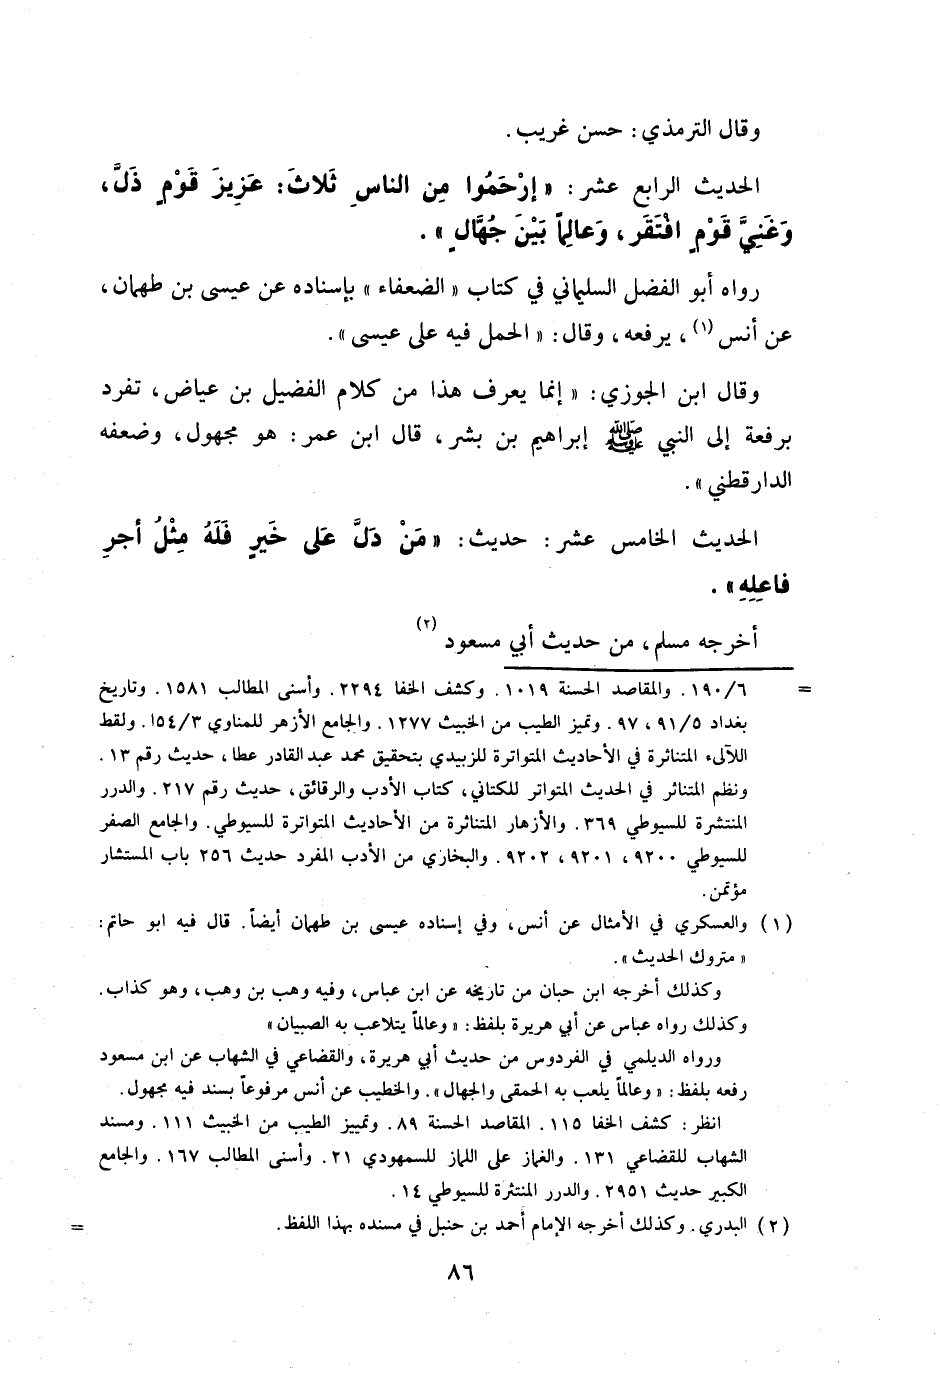 وقال الترمذي : حسن غريب .
الحديث الرابع عشر : « إرْحَمُوا مِن الناسِ ثَلاثَ : عَزِيزَ قَوْمٍ ذَلَّ ،
وَغَنِيَّ قَوْمٍ افْتَقَر ، وَعالِماً بَيْنَ جُهَّالٍ » .
رواه أبو الفضل السليماني في كتاب « الضعفاء » بإسناده عن عيسى بن طهمان ،
عن أنس (١) ، يرفعه ، وقال : « الحمل فيه على عيسى » .
وقال ابن الجوزي : « إنما يعرف هذا من كلام الفضيل بن عياض ، تفرد
برفعة إلى النبي ﷺ إبراهيم بن بشر ، قال ابن عمر : هو مجهول ، وضعفه
الدارقطني » .
الحديث الخامس عشر : حديث : « مَنْ دَلَّ على خَيرٍ فَلَهُ مِثْلُ أجرِ
فاعِلِهِ » .
أخرجه مسلم ، من حديث أبي مسعود (٢)
= ١٩٠/٦ . والمقاصد الحسنة ١٠١٩ . وكشف الخفا ٢٢٩٤ . وأسنى المطالب ١٥٨١ . وتاريخ
بغداد ٩١/٥ ، ٩٧ . وتميز الطيب من الخبيث ١٢٧٧ . والجامع الأزهر للمناوي ١٥٤/٣ . ولقط
اللآلىء المتناثرة في الأحاديث المتواترة للزبيدي بتحقيق محمد عبد القادر عطا ، حديث رقم ١٣ .
ونظم المتناثر في الحديث المتواتر للكتاني ، كتاب الأدب والرقائق ، حديث رقم ٢١٧ . والدرر
المنتشرة للسيوطي ٣٦٩ . والأزهار المتناثرة من الأحاديث المتواترة للسيوطي . والجامع الصفر
للسيوطي ٩٢٠٠ ، ٩٢٠١ ، ٩٢٠٢ . والبخاري من الأدب المفرد حديث ٢٥٦ باب المستشار
مؤتمن .
(١) والعسكري في الأمثال عن أنس ، وفي إسناده عيسى بن طهمان أيضاً . قال فيه ابو حاتم :
« متروك الحديث » .
وكذلك أخرجه ابن حبان من تاريخه عن ابن عباس ، وفيه وهب بن وهب ، وهو كذاب .
وكذلك رواه عباس عن أبي هريرة بلفظ : « وعالماً يتلاعب به الصبيان »
ورواه الديلمي في الفردوس من حديث أبي هريرة ، والقضاعي في الشهاب عن ابن مسعود
رفعه بلفظ : « وعالماً يلعب به الحمقى والجهال » . والخطيب عن أنس مرفوعاً بسند فيه مجهول .
انظر : كشف الخفا ١١٥ . المقاصد الحسنة ٨٩ . وتمييز الطيب من الخبيث ١١١ . ومسند
الشهاب للقضاعي ١٣١ . والغماز على اللماز للسمهودي ٢١ . وأسنى المطالب ١٦٧ . والجامع
الكبير حديث ٢٩٥١ . والدرر المنتثرة للسيوطي ١٤ .
(٢) البدري . وكذلك أخرجه الإمام أحمد بن حنبل في مسنده بهذا اللفظ . =
٨٦